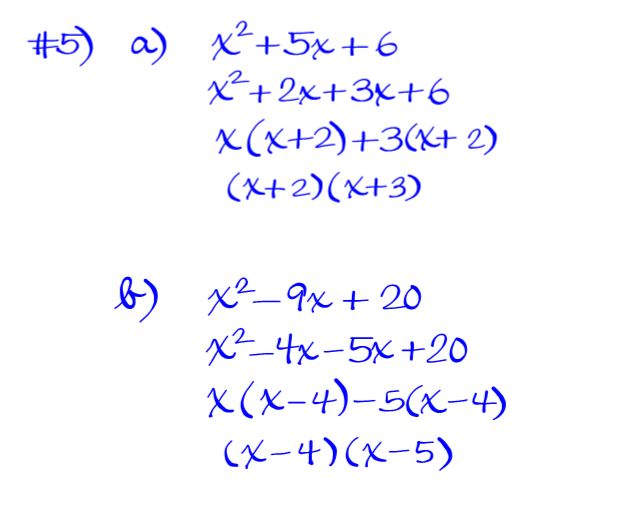 #5) a) x²+5x+6
x²+2x+3x+6
x(x+2)+3(x+2)
(x+2)(x+3)
b) x²-9x+20
x²-4x-5x+20
x(x-4)-5(x-4)
(x-4)(x-5)